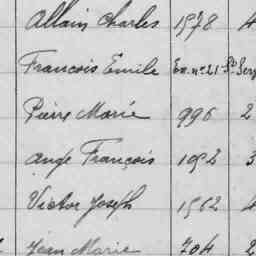 Allain Charles 1578 4
Francois Emile Ex. nº 21 Sᵗ Serv
Pierre Marie 996 2
Ange François 1092 3
Victor Joseph 1562 4
Jean Marie 704 2